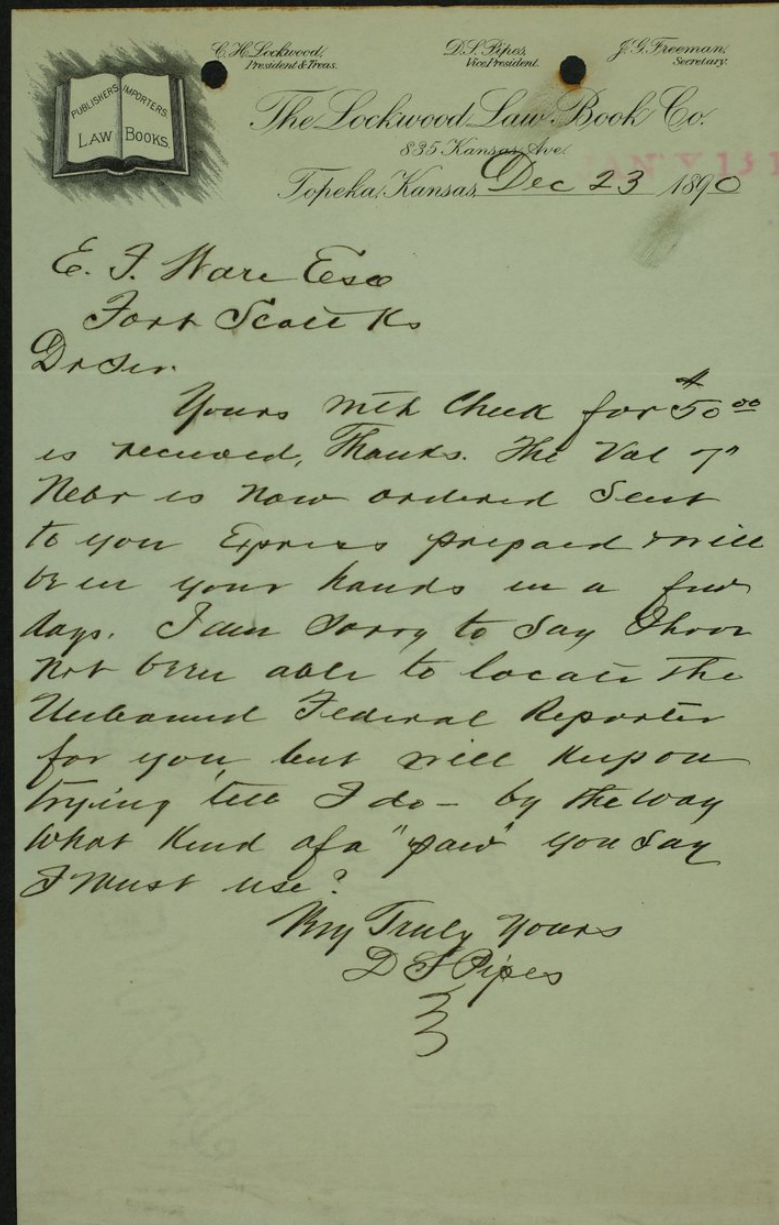 C. H. Lockwood, President & Treas.
D. S. Pipes, Vice President.
J. G. Freeman, Secretary.
PUBLISHERS IMPORTERS
LAW BOOKS.
The Lockwood Law Book Co.
835 Kansas Ave.
Topeka, Kansas, Dec 23 1890
E. F. Ware Esq
Fort Scott Ks
Dr Sir.
Yours with Check for $50 00
is received, Thanks. The Vol 7"
Nebr is now ordered Sent
to you Express prepaid & will
be in your hands in a few
days. I am Sorry to Say I have
not been able to locate the
Unbound Federal Reporter
for you, but will Keep on
trying till I do – by the way
What Kind of a "paw" you Say
I must use?
Very Truly Yours
D S Pipes